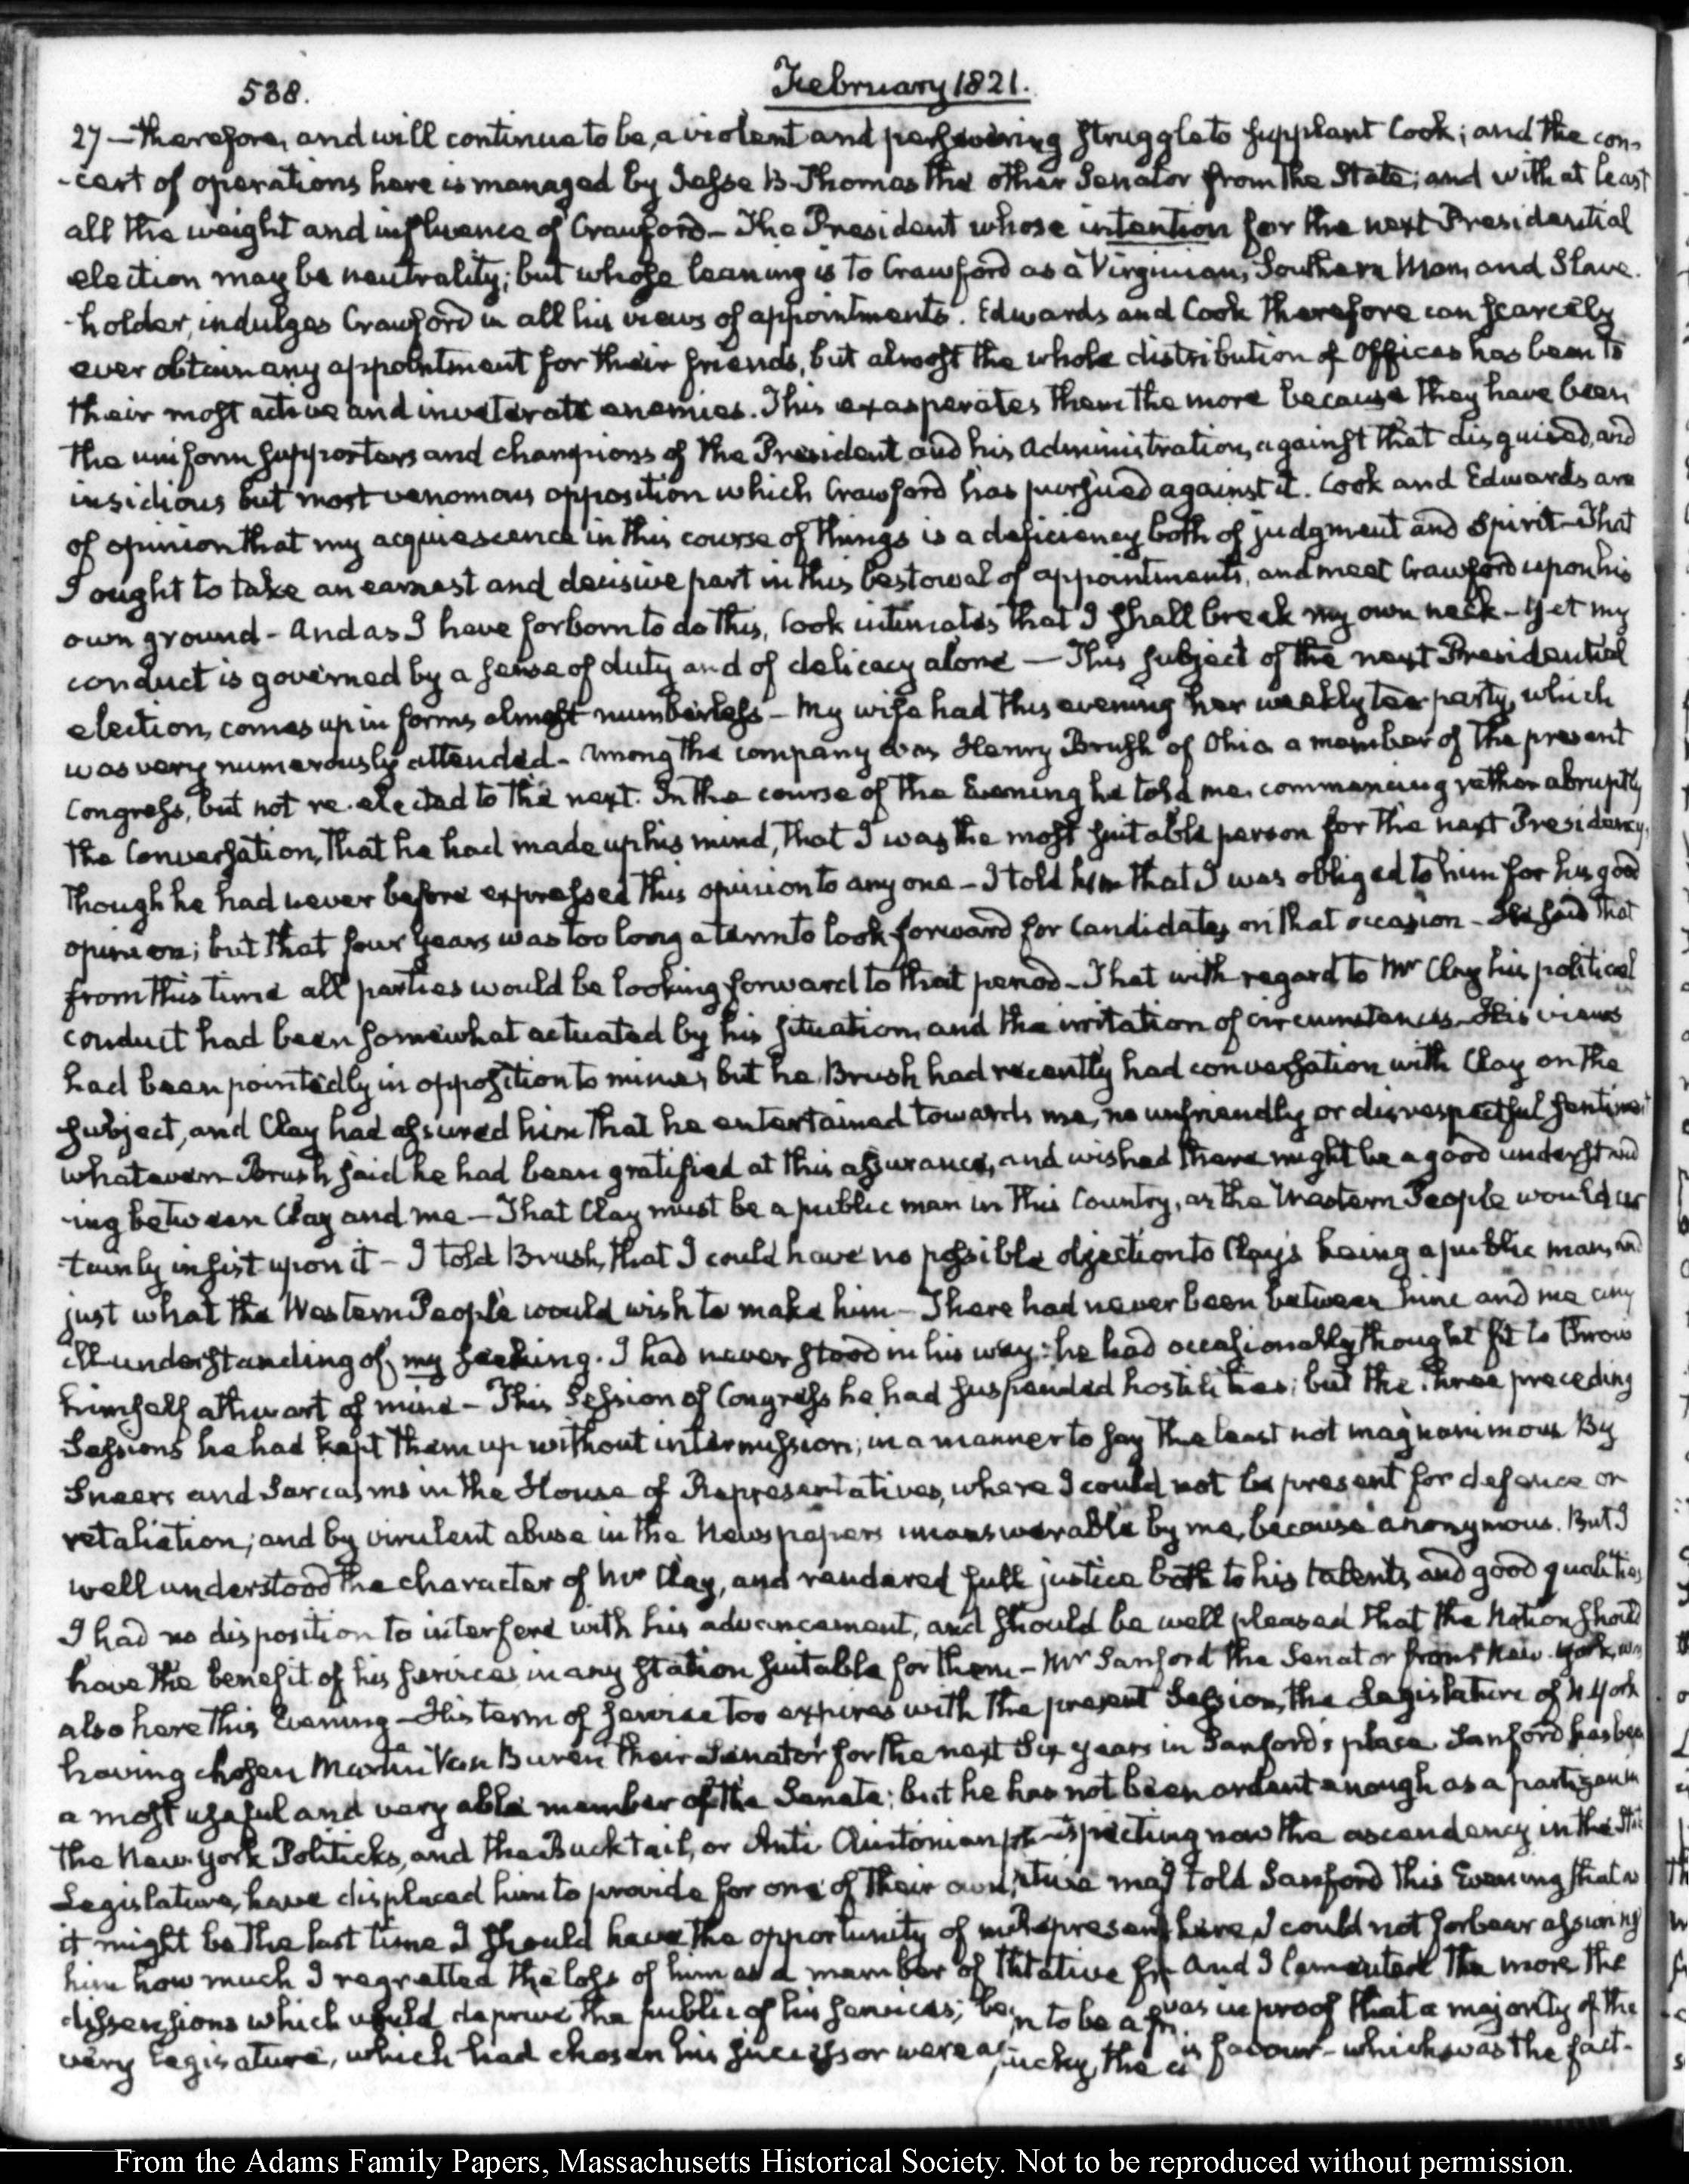 538.
February 1821.
27 — therefore, and will continue to be, a violent and persevering struggle to supplant Cook; and the con-
-cert of operations here is managed by Jesse B. Thomas the other Senator from the State; and with at least
all the weight and influence of Crawford — The President whose intention for the next Presidential
election may be neutrality; but whose leaning is to Crawford as a Virginian, Southern Man, and Slave-
-holder, indulges Crawford in all his views of appointments. Edwards and Cook therefore can scarcely
ever obtain any appointment for their friends, but almost the whole distribution of Offices has been to
their most active and inveterate enemies. This exasperates them the more because they have been
the uniform supporters and champions of the President and his Administration, against that disguised, and
insidious but most venomous opposition which Crawford has pursued against it. Cook and Edwards are
of opinion that my acquiescence in this course of things is a deficiency both of judgment and Spirit — That
I ought to take an earnest and decisive part in this bestowal of appointments, and meet Crawford upon his
own ground — And as I have forborn to do this, Cook intimates that I shall break my own neck — Yet my
conduct is governed by a sense of duty and of delicacy alone — This subject of the next Presidential
election, comes up in forms almost numberless — My wife had this evening her weekly tea party, which
was very numerously attended — Among the company was Henry Brush of Ohio a member of the present
Congress, but not re-elected to the next. In the course of the Evening he told me, commencing rather abruptly
the Conversation, that he had made up his mind, that I was the most suitable person for the next Presidency,
though he had never before expressed this opinion to any one — I told him that I was obliged to him for his good
opinion; but that four years was too long a term to look forward for Candidates on that occasion — He said that
from this time all parties would be looking forward to that period — That with regard to Mr Clay his political
conduct had been somewhat actuated by his situation, and the irritation of circumstances — His views
had been pointedly in opposition to mine, but he Brush had recently had conversation with Clay on the
subject, and Clay had assured him that he entertained towards me, no unfriendly or disrespectful sentiment
whatever — Brush said he had been gratified at this assurance, and wished there might be a good understand
-ing between Clay and me — That Clay must be a public man in this Country, as the Western People would cer
-tainly insist upon it — I told Brush, that I could have no possible objection to Clay's being a public man, and
just what the Western People would wish to make him — There had never been between him and me any
ill understanding of my seeking. I had never stood in his way: he had occasionally thought fit to throw
himself athwart of mine — This Session of Congress he had suspended hostilities; but the three preceding
Sessions he had kept them up without intermission; in a manner to say the least not magnanimous By
Sneers and Sarcasms in the House of Representatives, where I could not be present for defence or
retaliation; and by virulent abuse in the Newspapers unanswerable by me, because anonymous. But I
well understood the character of Mr Clay, and rendered full justice both to his talents, and good qualities
I had no disposition to interfere with his advancement, and should be well pleased that the Nation should
have the benefit of his services in any station suitable for them — Mr Sanford the Senator from New-York, was
also here this Evening — His term of service too expires with the present Session, the Legislature of N. York
having chosen Martin Van Buren their Senator for the next Six years in Sanford's place. Sanford has been
a most useful and very able member of the Senate; but he has not been ardent enough as a partizan in
the New-York Politicks, and the Bucktail, or Anti Clintonian now the ascendency in the State
Legislature, have displaced him to provide for one of their own, I told Sanford this Evening that as
it might be the last time I should have the opportunity of here I could not forbear assuring
him how much I regretted the loss of him as a member of And I lamented the more the
dissensions which would deprive the public of his services; was in proof that a majority of the
very Legislature, which had chosen his successor were favour — which was the fact —
From the Adams Family Papers, Massachusetts Historical Society. Not to be reproduced without permission.